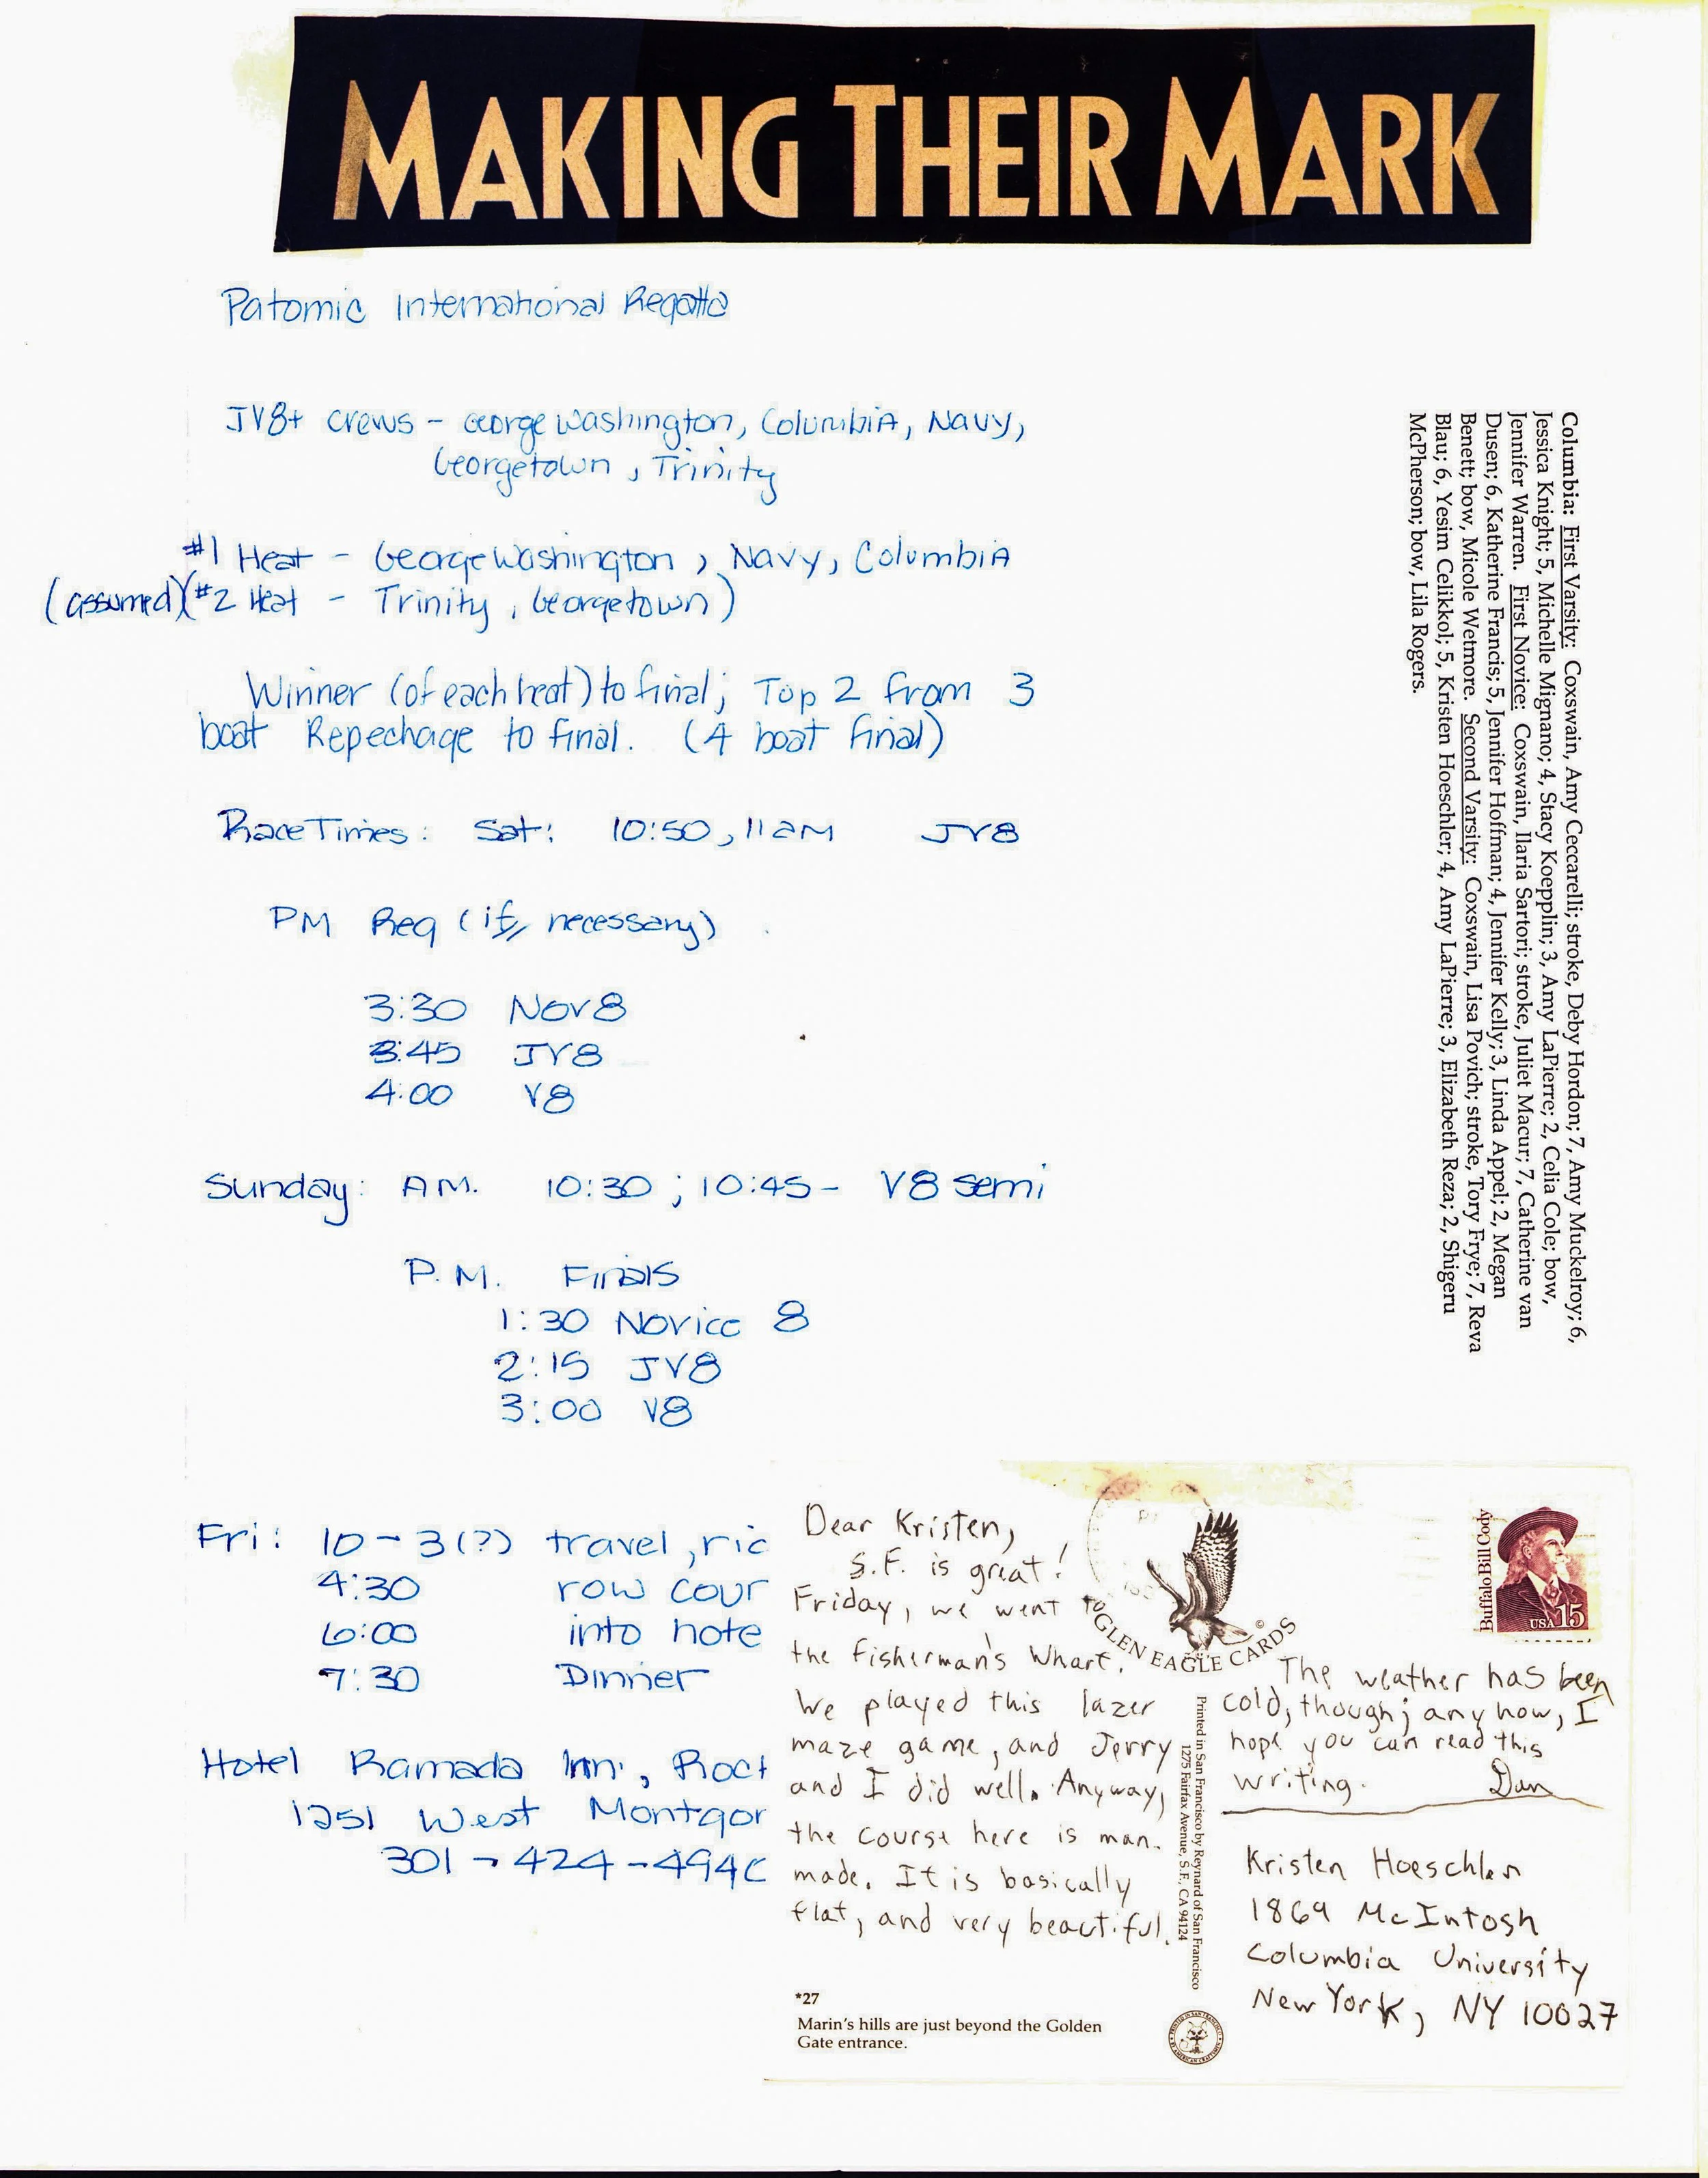 MAKING THEIR MARK
Patomic International Regatta
JV8+ crews - George Washington, Columbia, Navy,
Georgetown, Trinity
#1 Heat - George Washington, Navy, Columbia
(assumed) (#2 Heat - Trinity, Georgetown)
Winner (of each heat) to final; Top 2 from 3
boat Repechage to final. (4 boat final)
Race Times: Sat: 10:50, 11 am JV8
PM Req (if necessary)
3:30 Nov8
3:45 JV8
4:00 V8
Sunday: AM. 10:30; 10:45- V8 semi
P.M. Finals
1:30 Novice 8
2:15 JV8
3:00 V8
Fri: 10-3(?) travel, ric
4:30 row cour
6:00 into hote
7:30 Dinner
Hotel Ramada Inn, Roc
1251 West Montgor
301-424-494
Columbia: First Varsity: Coxswain, Amy Ceccarelli; stroke, Deby Hordon; 7, Amy Muckelroy; 6,
Jessica Knight; 5, Michelle Mignano; 4, Stacy Koepplin; 3, Amy LaPierre; 2, Celia Cole; bow,
Jennifer Warren. First Novice: Coxswain, Ilaria Sartori; stroke, Juliet Macur; 7, Catherine van
Dusen; 6, Katherine Francis; 5, Jennifer Hoffman; 4, Jennifer Kelly; 3, Linda Appel; 2, Megan
Benett; bow, Micole Wetmore. Second Varsity: Coxswain, Lisa Povich; stroke, Tory Frye; 7, Reva
Blau; 6, Yesim Celikkol; 5, Kristen Hoeschler; 4, Amy LaPierre; 3, Elizabeth Reza; 2, Shigeru
McPherson; bow, Lila Rogers.
Dear Kristen,
S.F. is great!
Friday, we went to
the Fisherman's Wharf.
We played this lazer
maze game, and Jerry
and I did well. Anyway,
the course here is man-
made. It is basically
flat, and very beautiful.
*27
Marin's hills are just beyond the Golden
Gate entrance.
© GLEN EAGLE CARDS
Printed in San Francisco by Reynard of San Francisco
1275 Fairfax Avenue, S.F., CA 94124
Buffalo Bill Cody
USA 15
The weather has been
cold, though; any how, I
hope you can read this
writing. Dan
Kristen Hoeschler
1869 McIntosh
Columbia University
New York, NY 10027